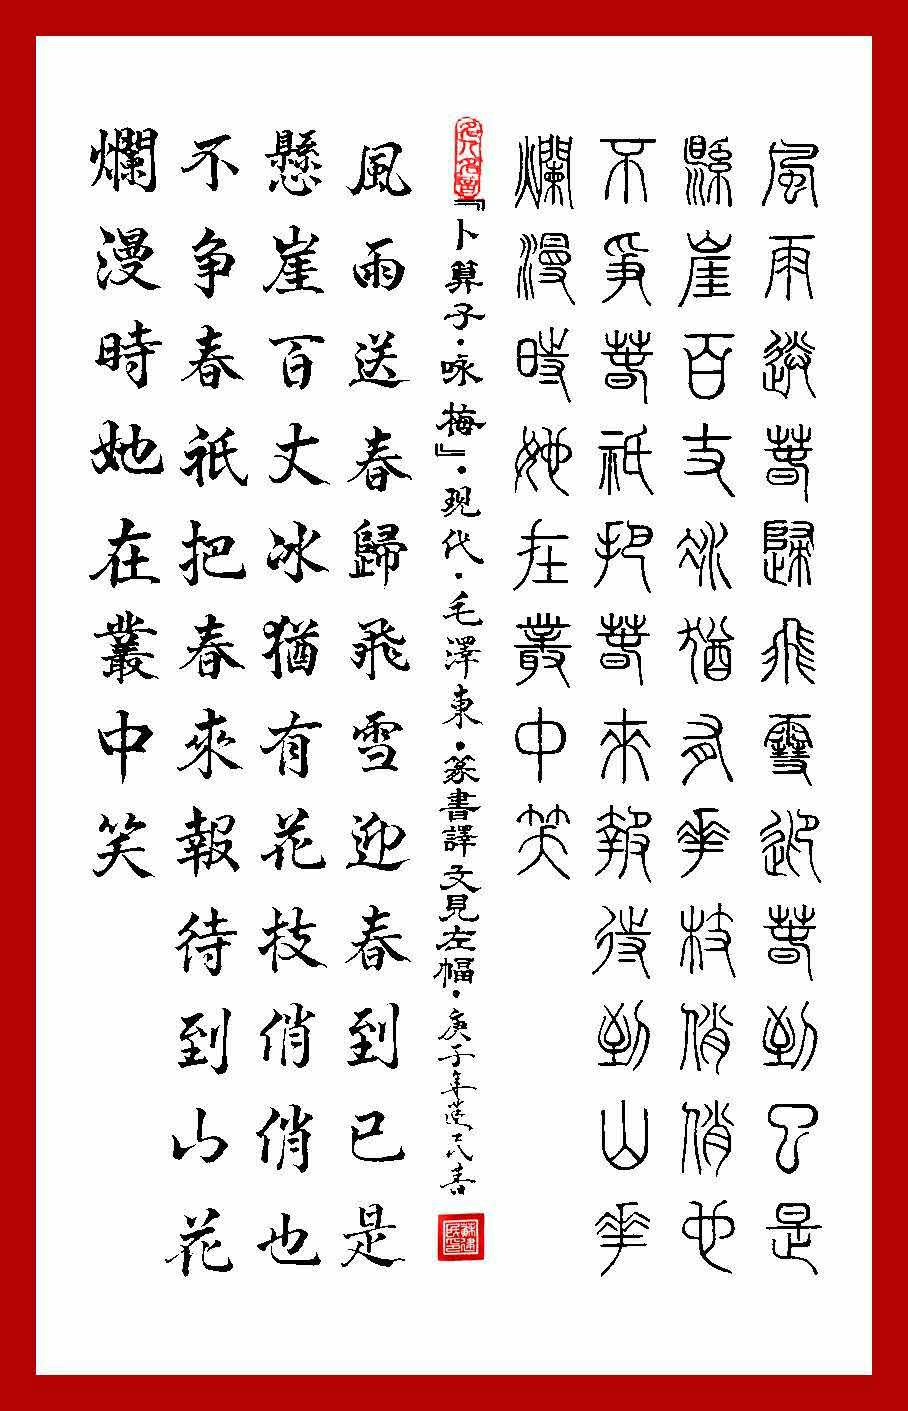 風雨送春歸飛雪迎春到已是
縣崖百丈冰猶有華枝俏俏也
不爭春祇把春來報待到山華
爛漫時她在叢中笑
『卜算子·咏梅』·現代·毛澤東·篆書譯文見左幅·庚子年
風雨送春歸飛雪迎春到已是
懸崖百丈冰猶有花技俏俏也
不争春祇把春來報待到山花
爛漫時她在叢中笑